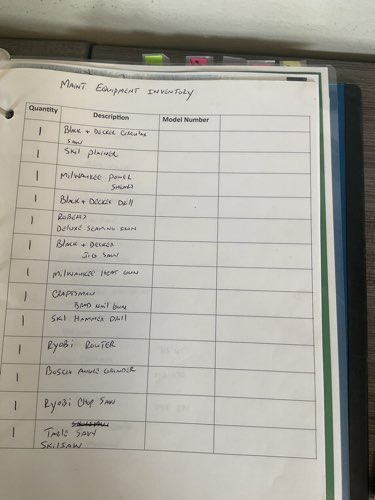 MAINT. EQUIPMENT INVENTORY
Quantity Description Model Number
1 Black + Decker Circular
Saw
1 Skil Plainer
1 Milwaukee Power
Shears
1 Black + Decker Drill
1 Roberts
Deluxe Seaming Iron
1 Black + Decker
Jig Saw
1 Milwaukee Heat Gun
1 Craftsman
Brad Nail Gun
1 Skil Hammer Drill
1 Ryobi Router
1 Bosch Angle Grinder
1 Ryobi Chop Saw
1 Table Saw
Skilsaw